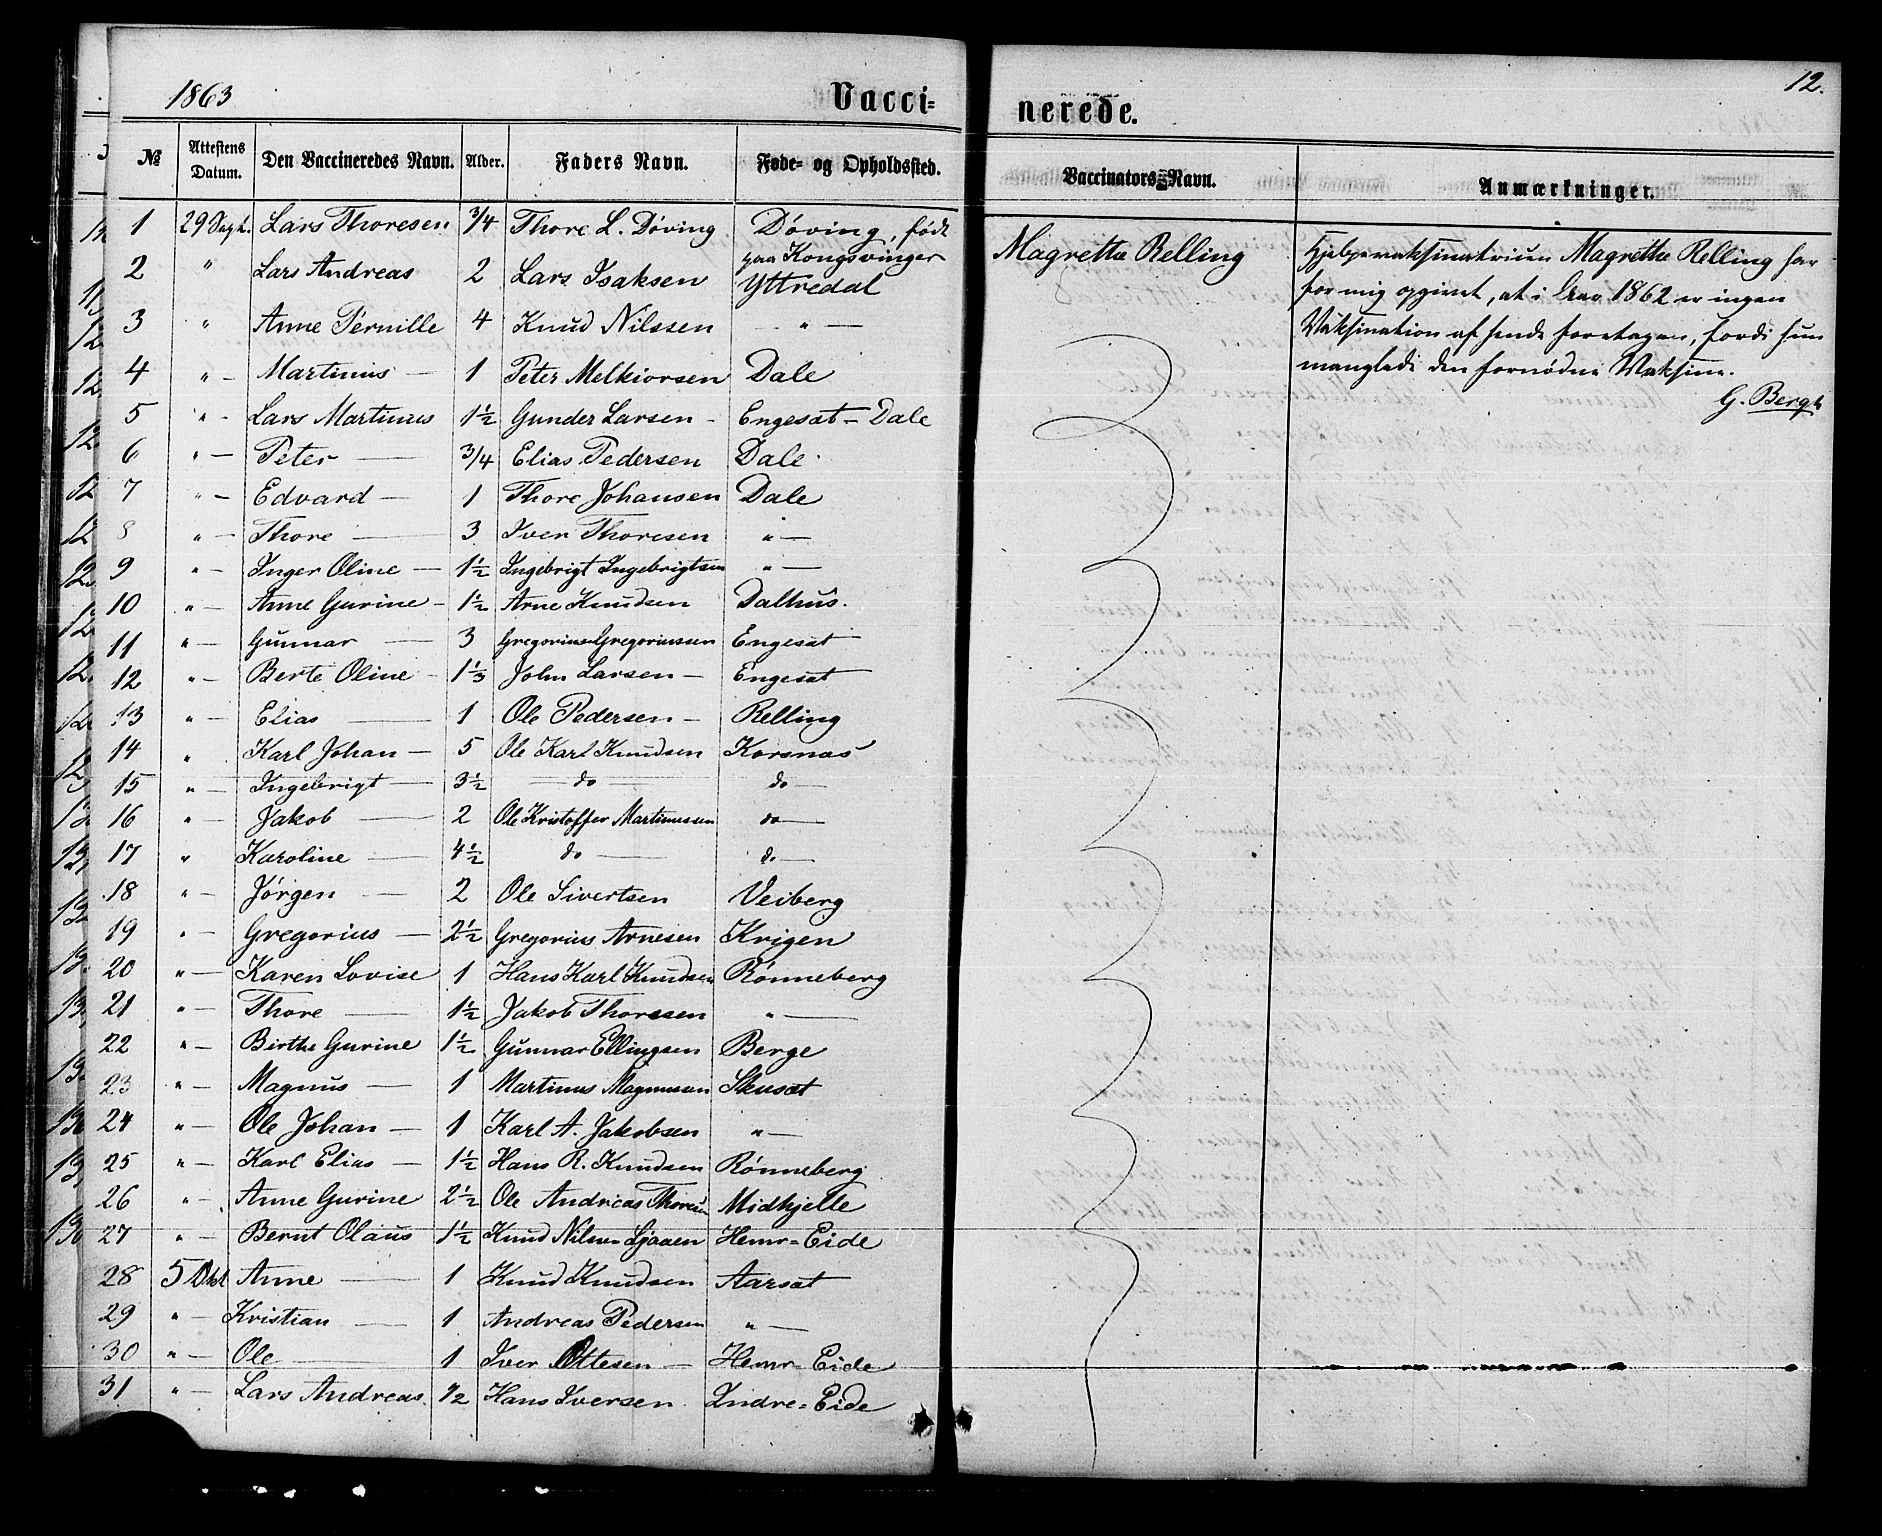 1863 Vacci= nerede. 12.
№ Attestens Datum. Den Vaccineredes Navn. Alder. Faders Navn. Føde- og Opholdssted. Vaccinators Navn. Anmærkninger.
1 29 Sept. Lars Thoresen 3/4 Thore L. Döving Döving, födt paa Kongsvinger Magrethe Relling
2 " Lars Andreas 2 Lars Isaksen Yttredal
3 " Anne Pernille 4 Knud Nilssen "
4 " Martinus 1 Peter Melkiorsen Dale
5 " Lars Martinus 1½ Gunder Larsen Engesæt - Dale
6 " Peter 3/4 Elias Pedersen Dale
7 " Edvard 1 Thore Johansen Dale
8 " Thore 3 Iver Thoresen "
9 " Inger Oline 1½ Ingebrigt Ingebrigtsen "
10 " Anne Gurine 1½ Arne Knudsen Dalhus.
11 " Gunnar 3 Gregorius Gregoriussen Engesæt
12 " Berte Oline 1⅓ John Larsen Engesæt
13 " Elias 1 Ole Pedersen Relling
14 " Karl Johan 5 Ole Karl Knudsen Korsnæs
15 " Ingebrigt 3½ do do
16 " Jakob 2 Ole Kristoffer Martinussen do
17 " Karoline 4½ do do
18 " Jörgen 2 Ole Sivertsen Veiberg
19 " Gregorius 2½ Gregorius Arnesen Krigen
20 " Karen Lovise 1 Hans Karl Knudsen Rönneberg
21 " Thore 1½ Jakob Thoresen "
22 " Birthe Gurine 1½ Gunnar Ellingsen Berge
23 " Magnus 1 Martinus Magnussen Skusæt
24 " Ole Johan 1 Karl A. Jakobsen "
25 " Karl Elias 1½ Hans R. Knudsen Rönneberg
26 " Anne Gurine 2½ Ole Andreas Thoresen Midhjelle
27 " Bernt Olaus 1½ Knud Nilsen Ljaaen Hemr=Eide
28 5 Okt Anne 1 Knud Knudsen Aarsæt
29 " Kristian 1 Andreas Pedersen "
30 " Ole 1 Iver Ottesen Hemr=Eide
31 " Lars Andreas. 1/2 Hans Iversen Indre=Eide
Hjelpevaksinatricen Magrethe Relling har
for mig opgivet, at i Aar 1862 er ingen
Vaksination af hende foretagen, fordi hun
manglede den fornødne Vaksine.
G. Bergh